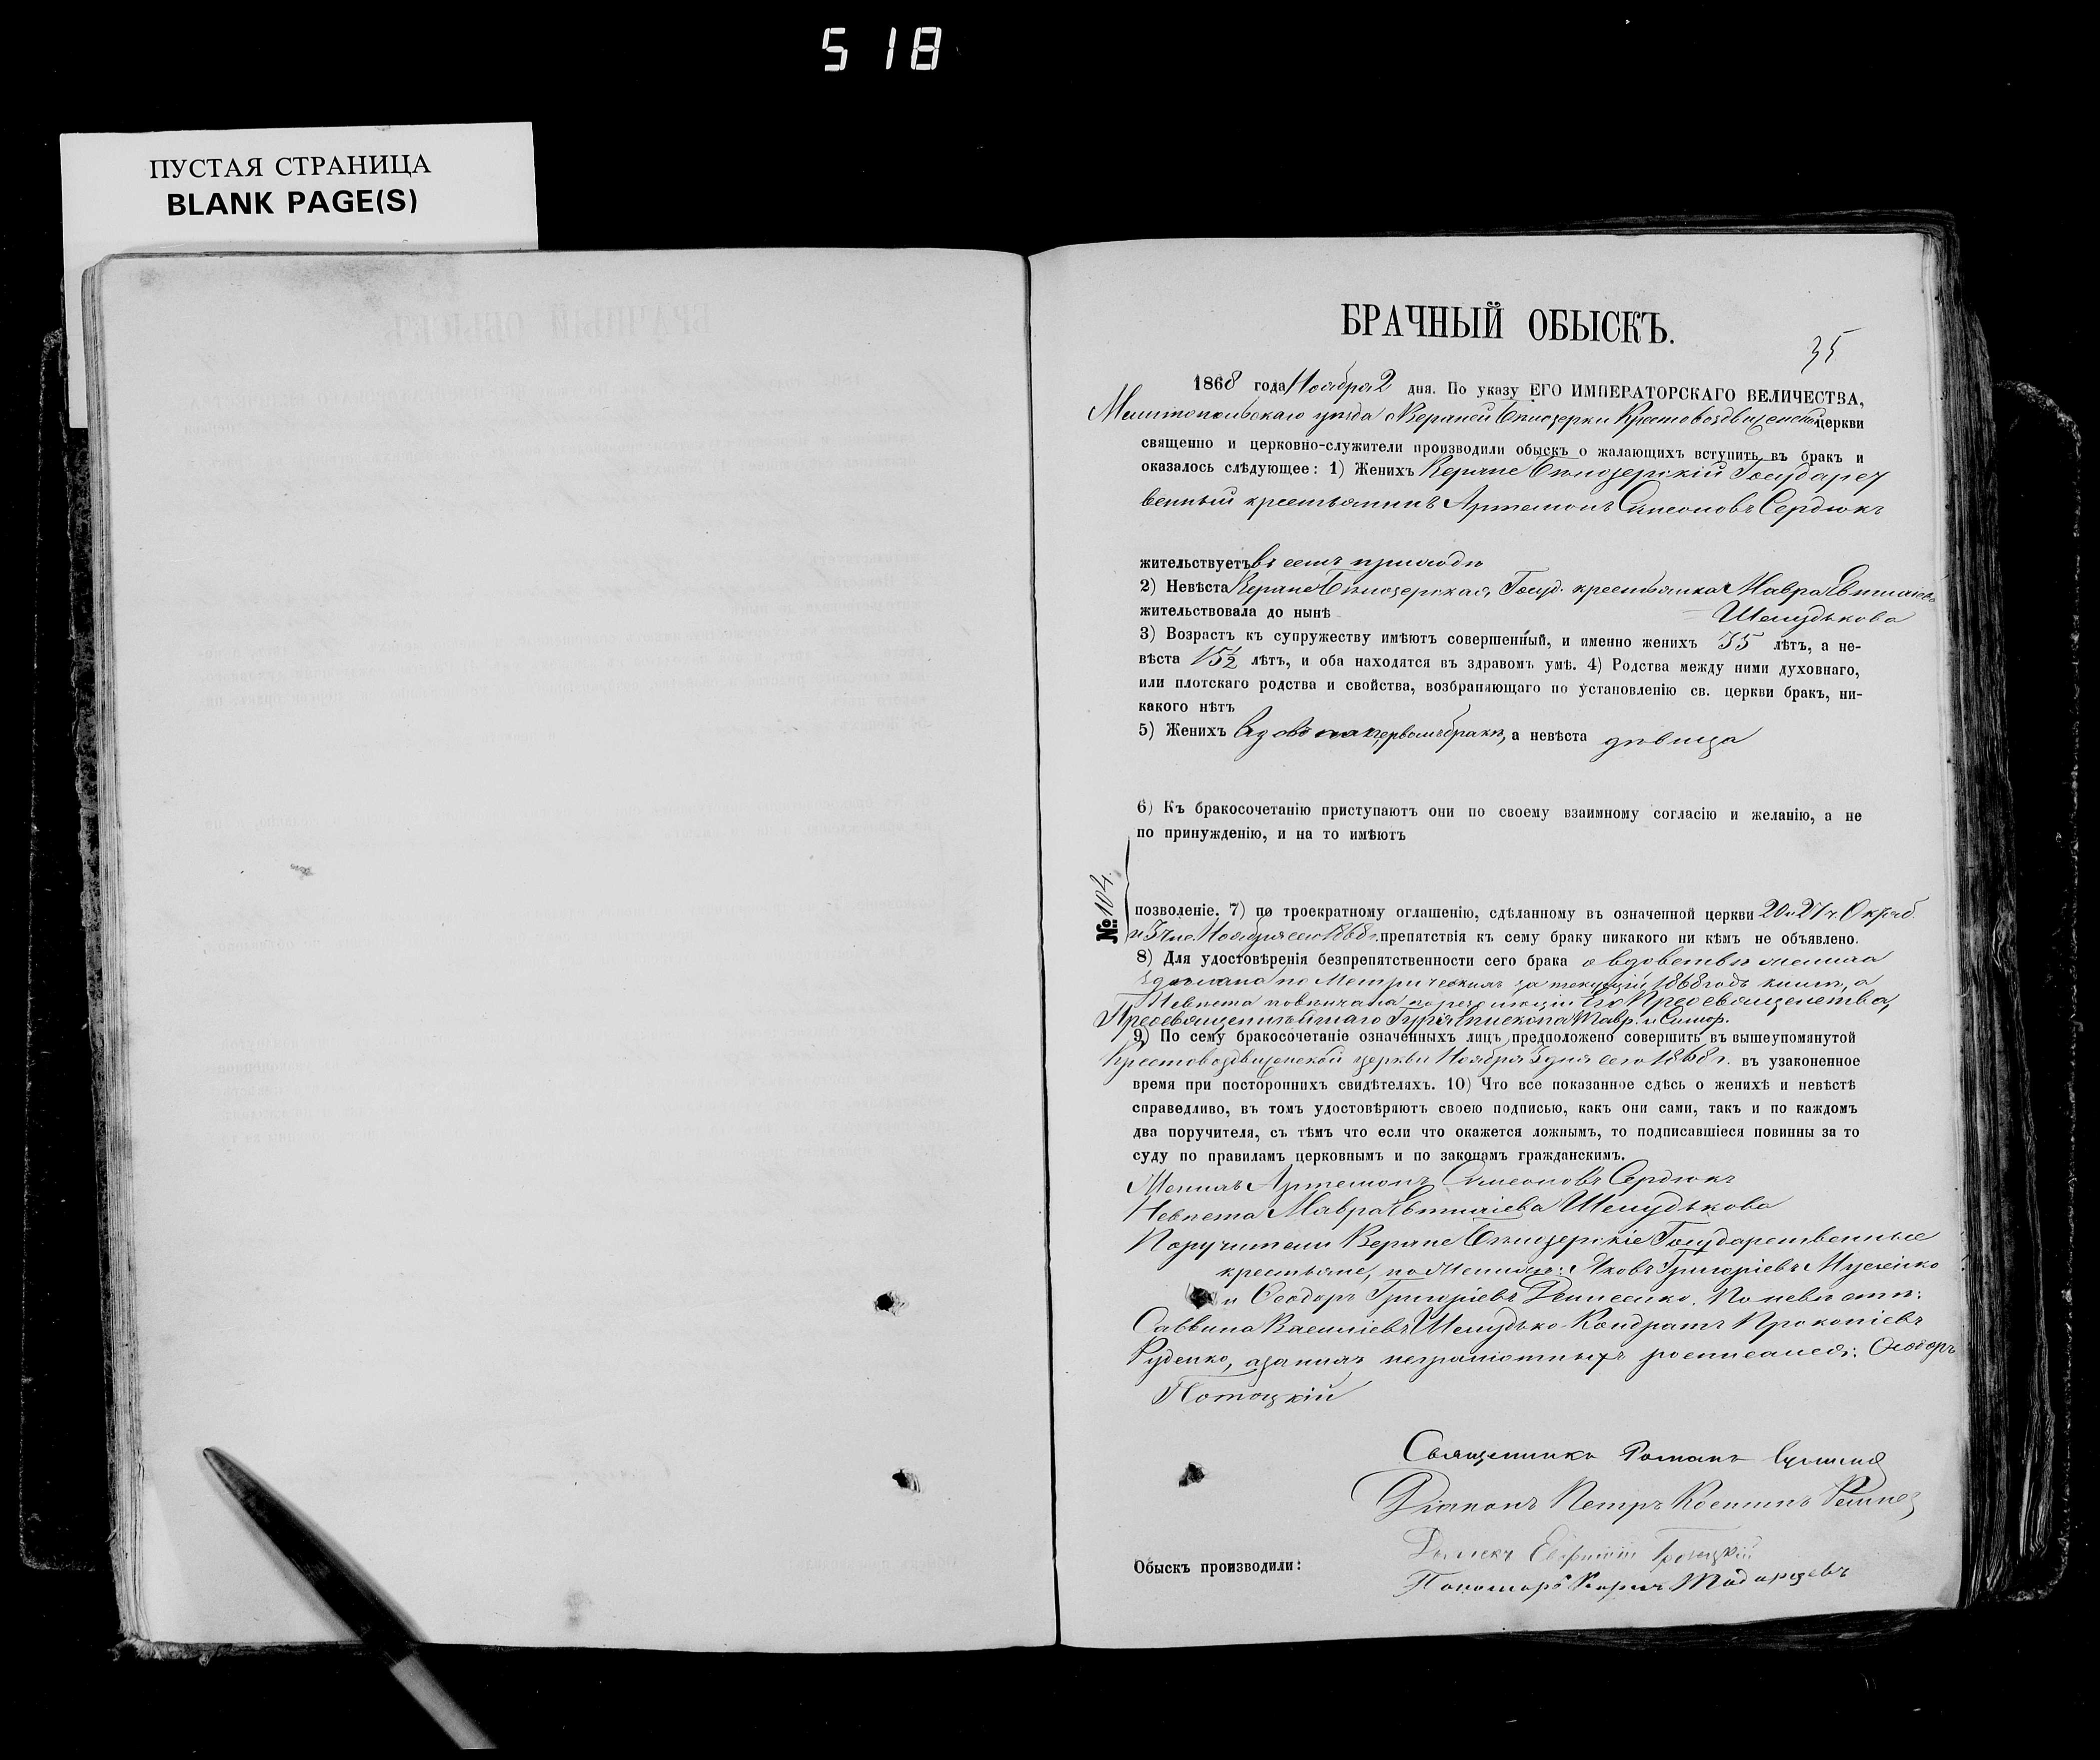 518
ПУСТАЯ СТРАНИЦА
BLANK PAGE(S)
БРАЧНЫЙ ОБЫСКЪ.
35
1868 года Ноября 2 дня. По указу ЕГО ИМПЕРАТОРСКАГО ВЕЛИЧЕСТВА,
Мелитопольскаго уѣзда Бѣлозерки Крестовоздвиженской церкви
священно и церковно-служители производили обыскъ о жалающихъ вступить въ бракъ и
оказалось слѣдующее: 1) Женихъ Верхне Бѣлозерскій Государст
венный крестьянинъ Артемонъ Симеоновъ Сердюкъ
жительствуетъ въ семъ приходѣ
2) Невѣста Верхне Бѣлозерская Госуд. крестьянка Мавра Евтихіева
жительствовала до нынѣ Шелудькова
3) Возрастъ къ супружеству имѣютъ совершенный, и именно женихъ 35 лѣтъ, а не-
вѣста 15½ лѣтъ, и оба находятся въ здравомъ умѣ. 4) Родства между ними духовнаго,
или плотскаго родства и свойства, возбраняющаго по установленію св. церкви бракъ, ни-
какого нѣтъ
5) Женихъ вдовъ первомъ бракѣ, а невѣста дѣвица
6) Къ бракосочетанію приступаютъ они по своему взаимному согласію и желанію, а не
по принужденію, и на то имѣютъ
№ 104.
позволеніе. 7) по троекратному оглашенію, сдѣланному въ означенной церкви 20 и 27 ч. Октяб.
и 3 Ноября сего 1868 г. препятствія къ сему браку никакого ни кѣмъ не объявлено.
8) Для удостовѣренія безпрепятственности сего брака о вдовствѣ жениха
сдѣлана по Метрическимъ за текущій 1868 годъ книгѣ, а
Невѣста повѣнчана по резолюціи Его Преосвященства,
Преосвященнѣйшаго Гурія Епископа Тавр. и Симф.
9) По сему бракосочетаніе означенныхъ лицъ предположено совершить въ вышеупомянутой
Крестовоздвиженской церкви Ноября 3 дня сего 1868 г. въ узаконенное
время при постороннихъ свидѣтеляхъ. 10) Что все показанное сдѣсь о женихѣ и невѣстѣ
справедливо, въ томъ удостовѣряютъ своею подписью, какъ они сами, такъ и по каждомъ
два поручителя, съ тѣмъ что если что окажется ложнымъ, то подписавшіеся повинны за то
суду по правиламъ церковнымъ и по законамъ гражданскимъ.
Женихъ Артемонъ Симеоновъ Сердюкъ
Невѣста Мавра Евтихіева Шелудькова
Поручители Верхне Бѣлозерскіе Государственные
крестьяне, по Женихѣ: Яковъ Григоріевъ
и Ѳеодоръ Григоріевъ Денисенко. По невѣстѣ:
Саввина Василіевъ Шелудько Кондратъ Прокопіевъ
Руденко, а за нихъ неграмотныхъ росписался: Ѳеодоръ
Потоцкій
Священникъ Романъ
Діаконъ Петръ Костинъ
Дьячекъ Евфимій
Обыскъ производили:
Пономарь